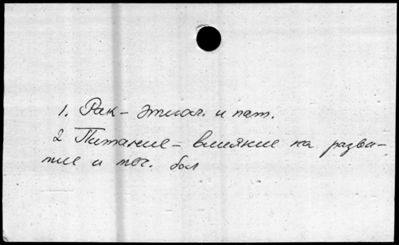 1. Рак - этиол. и пат.
2 Питание - влияние на разви-
тие и теч. бол